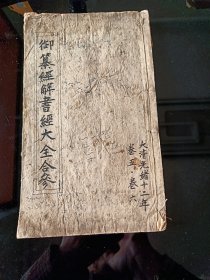 御纂經解書經大全合參
大淸光緒十二年
卷五·卷六